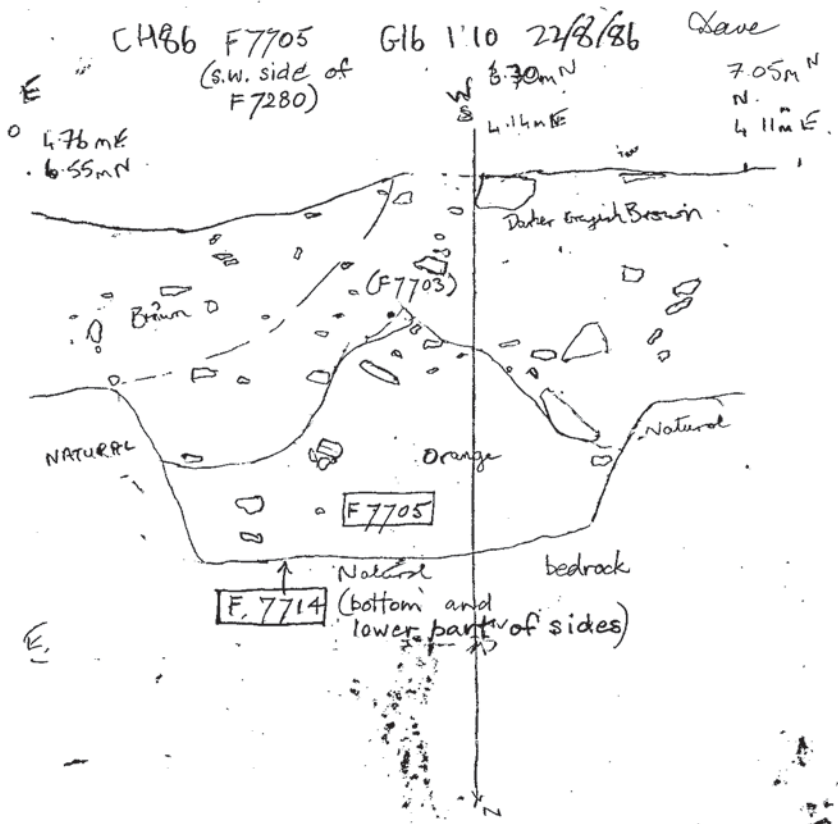 CH86 F7705 G16 1:10 22/8/86 Dave
(s.w. side of
F7280)
E
4.76mE
6.55mN
W
S
mN
4.14mE
7.05mN
N.
4.11mE.
Darker Grayish Brown
(F7703)
Brown
NATURAL
Orange
Natural
F7705
Natural
bedrock
F. 7714
(bottom and
lower part of sides)
E
N